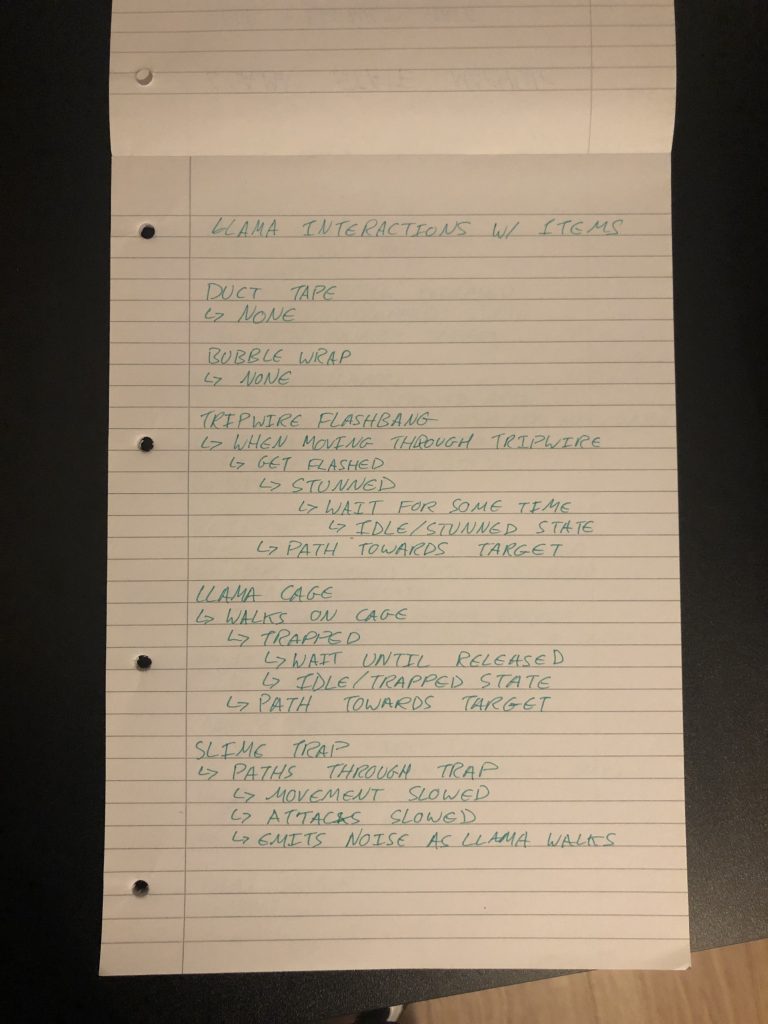 LLAMA INTERACTIONS W/ ITEMS
DUCT TAPE
↳ NONE
BUBBLE WRAP
↳ NONE
TRIPWIRE FLASHBANG
↳ WHEN MOVING THROUGH TRIPWIRE
↳ GET FLASHED
↳ STUNNED
↳ WAIT FOR SOME TIME
↳ IDLE/STUNNED STATE
↳ PATH TOWARDS TARGET
LLAMA CAGE
↳ WALKS ON CAGE
↳ TRAPPED
↳ WAIT UNTIL RELEASED
↳ IDLE/TRAPPED STATE
↳ PATH TOWARDS TARGET
SLIME TRAP
↳ PATHS THROUGH TRAP
↳ MOVEMENT SLOWED
↳ ATTACKS SLOWED
↳ EMITS NOISE AS LLAMA WALKS